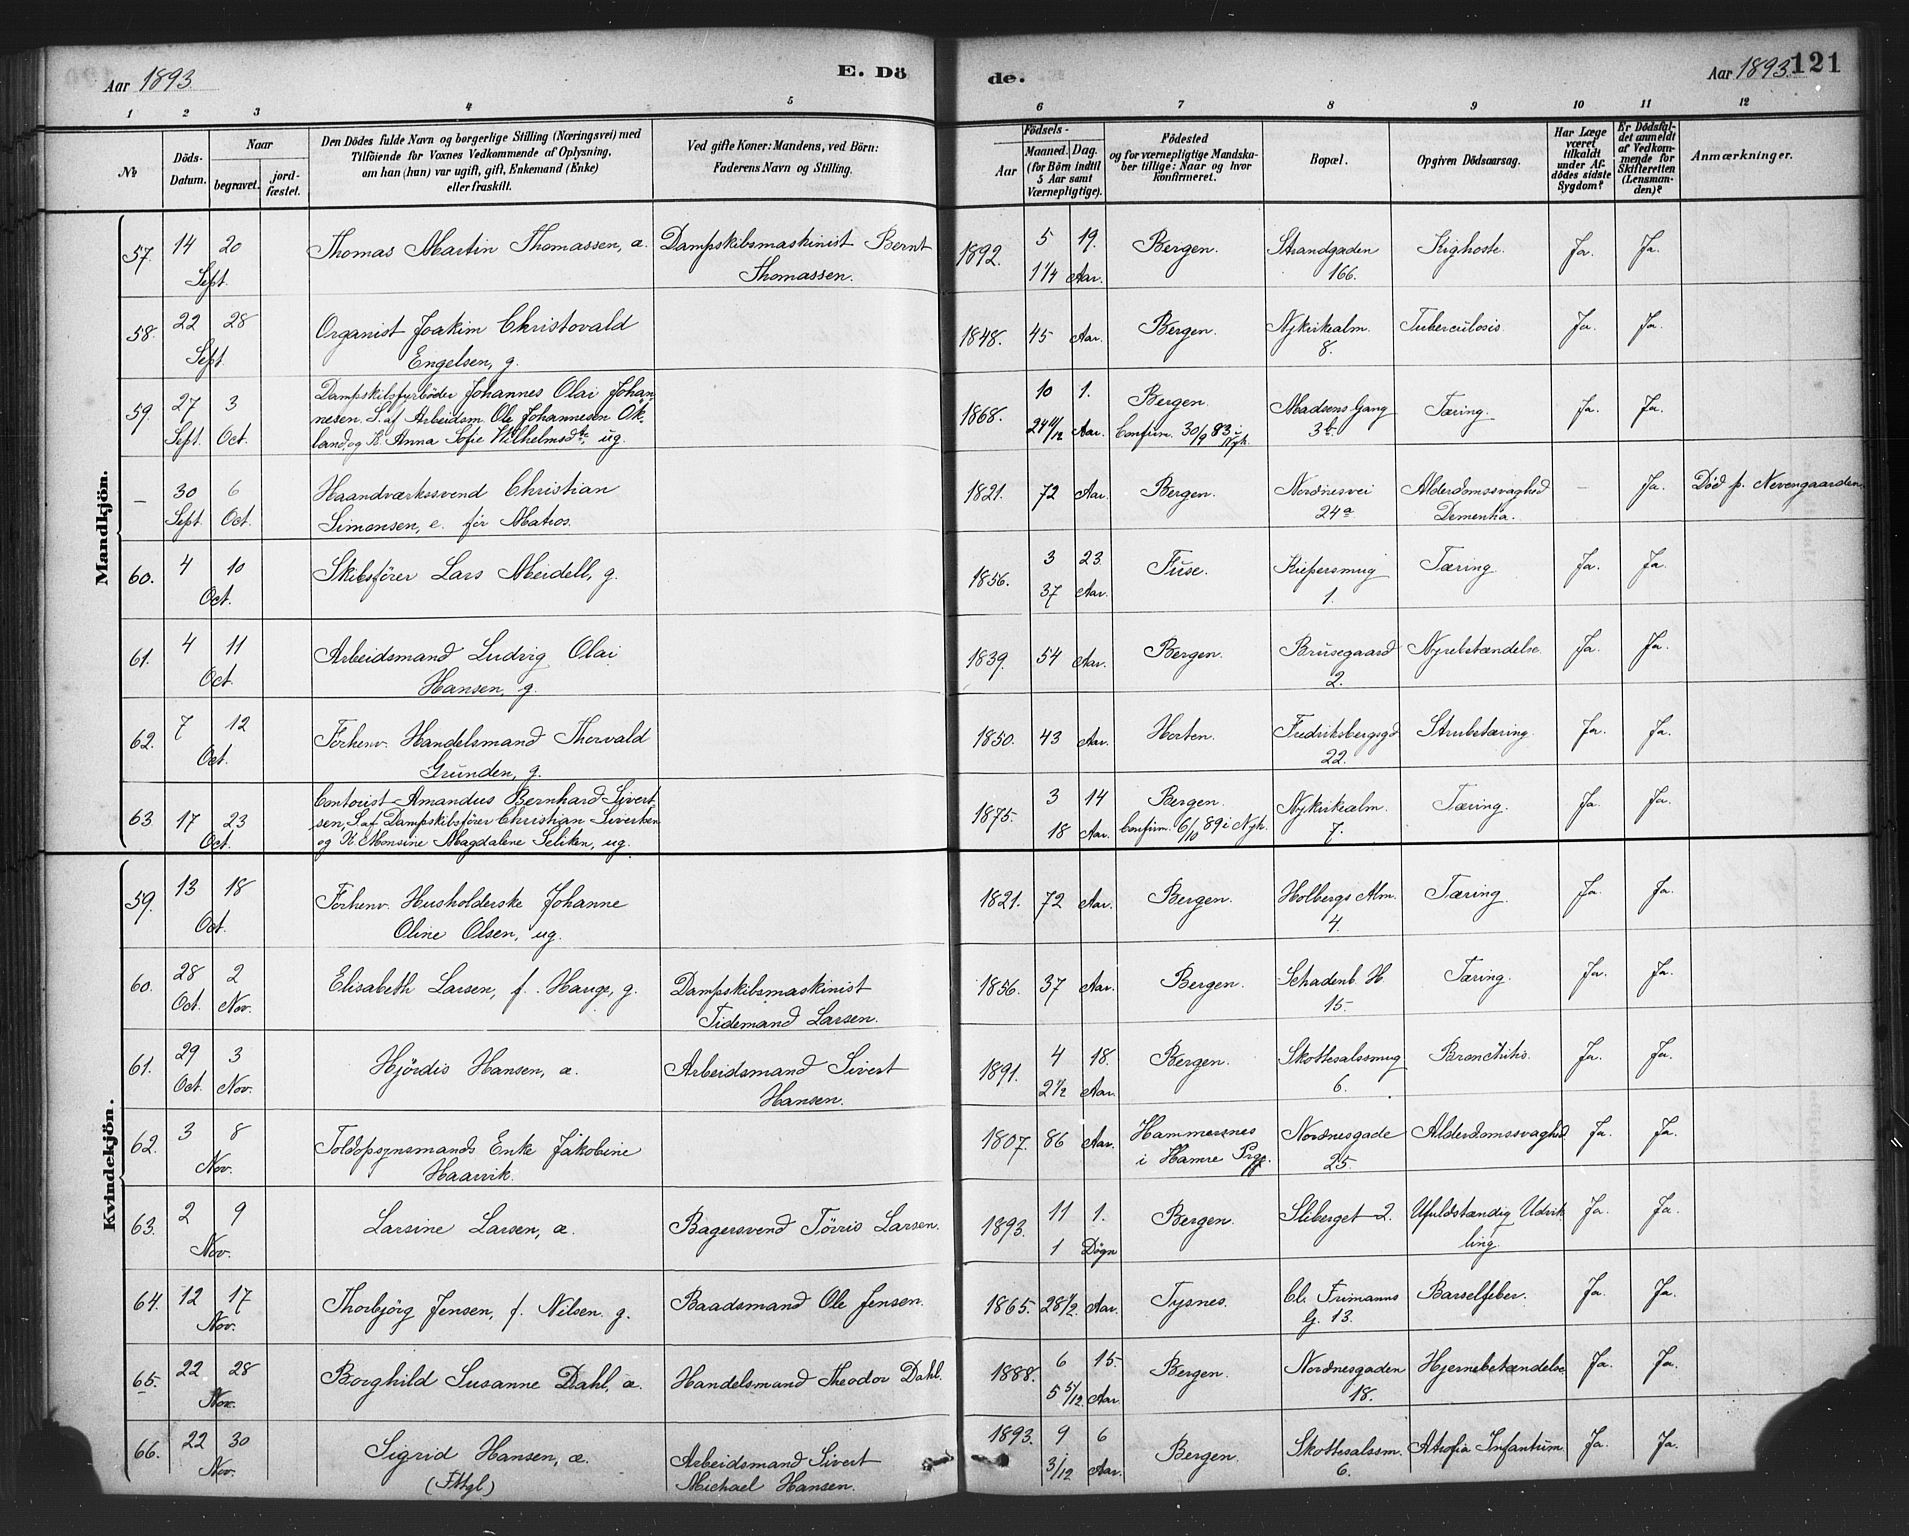 Aar 1893. E. Dö
1 2 3 4 5
№ Döds-Datum. Naar begravet. jord-fæstet. Den Dödes fulde Navn og borgerlige Stilling (Næringsvei) med Tilföiende for Voxnes Vedkommende af Oplysning, om han (hun) var ugift, gift, Enkemand (Enke) eller fraskilt. Ved gifte Koner: Mandens, ved Börn: Faderens Navn og Stilling.
de. Aar 1893. 121
6 7 8 9 10 11 12
Födsels- Aar Maaned. Dag. (for Börn indtil 5 Aar samt Værnepligtige). Födested og for værnepligtige Mandskaber tillige: Naar og hvor konfirmeret. Bopæl. Opgiven Dödsaarsag. Har Læge været tilkaldt under Afdödes sidste Sygdom? Er Dödsfaldet anmeldt af Vedkommende for Skifteretten (Lensmanden)? Anmærkninger.
Mandkjön.
57. 14 20 Thomas Martin Thomassen, æ. Dampskibsmaskinist Bernt 1892. 5 19. Bergen. Strandgaden Kighoste. Ja. Ja.
Sept. Thomassen. 1 1/4 Aar. 166.
58. 22 28 Organist Joakim Christovald 1848. 45 Aar. Bergen. Nykirkealm. Tuberculosis Ja. Ja.
Sept. Engelsen, g. 8.
59. 27 3 Dampskibsfyrböder Johannes Olai Johan- 1868. 10 1. Bergen. Madsens Gang Tæring. Ja. Ja.
nesen S. af Arbeidsm. Ole Johannesen Ök- 24 11/12 Aar. Confirm. 30/9 83 i Nyk. 3b.
Sept. Oct. land, og K. Anna Sofie Wilhelmsdtr, ug.
– 30 6 Haandværkssvend Christian 1821. 72 Aar. Bergen. Nordnesvei Alderdomssvaghed – Ja. Död p. Nevengaarden.
Sept Oct. Simonsen, e. för Matros. 24a Dementia.
60. 4 10 Skibsförer Lars Meidell, g. 1856. 3 23. Fuse. Kiepersmug Tæring. Ja. Ja.
Oct. 37 Aar. 1.
61. 4 11 Arbeidsmand Ludvig Olai 1839. 54 Aar. Bergen. Brusegaard Nyrebetændelse. Ja. Ja.
Oct. Hansen, g. 2.
62. 7 12 Forhenv. Handelsmand Thorvald 1850. 43 Aar. Horten. Fredriksbergsgd Strubetæring. Ja. Ja.
Oct. Grunden, g. 22.
63 17 23 Contorist Amandus Bernhard Sivert- 1875. 3 14 Bergen. Nykirkealm. Tæring. Ja. Ja.
sen, S. af Dampskibsförer Christian Sivertsen 18 Aar. Confirm. 6/10 89 i Nyk. 7.
Oct. og K. Monsine Magdalene Seliken, ug.
Kvindekjön.
59. 13 18 Forhenv. Husholderske Johanne 1821. 72 Aar. Bergen. Holbergs Alm. Tæring. Ja. Ja.
Oct. Oline Olsen, ug. 4.
60. 28 2 Elisabeth Larsen, f. Hauge, g. Dampskibsmaskinist 1856. 37 Aar. Bergen. Schadenb. H. Tæring. Ja. Ja.
Oct. Nov. Tidemand Larsen. 15.
61. 29 3 Hjördis Hansen, æ. Arbeidsmand Sivert 1891. 4 18. Bergen. Skottesalssmug Bronchitis. Ja. Ja.
Oct. Nov. Hansen. 2 1/2 Aar. 6.
62. 3 8 Toldopsynsmands Enke Jakobine 1807. 86 Aar. Hammersnes Nordnesgade Alderdomssvaghed Ja. Ja.
Nov. Haarvik. i Hamre Prgj. 25.
63. 2 9 Larsine Larsen, æ. Bagersvend Törris Larsen. 1893. 11 1. Bergen. Sliberget 2. Ufuldstændig Udvik- Ja. Ja.
Nov. 1 Dögn ling.
64. 12 17 Thorbjörg Jensen, f. Nilsen, g. Baadsmand Ole Jensen. 1865. 28 1/2 Aar. Tysnes. Cl. Frimanns Barselfeber. Ja. Ja.
Nov. G. 13.
65. 22 28 Borghild Susanne Dahl, æ. Handelsmand Theodor Dahl. 1888. 6 15. Bergen. Nordnesgaden Hjernebetændelse Ja. Ja.
Nov. 5 5/12 Aar. 18.
66. 22 30 Sigrid Hansen, æ. Arbeidsmand Sivert 1893. 9 6 Bergen. Skottesalssm. Atrofia Infantum. Ja. Ja.
Nov. (Fthgl) Michael Hansen. 3/12 Aar. 6.